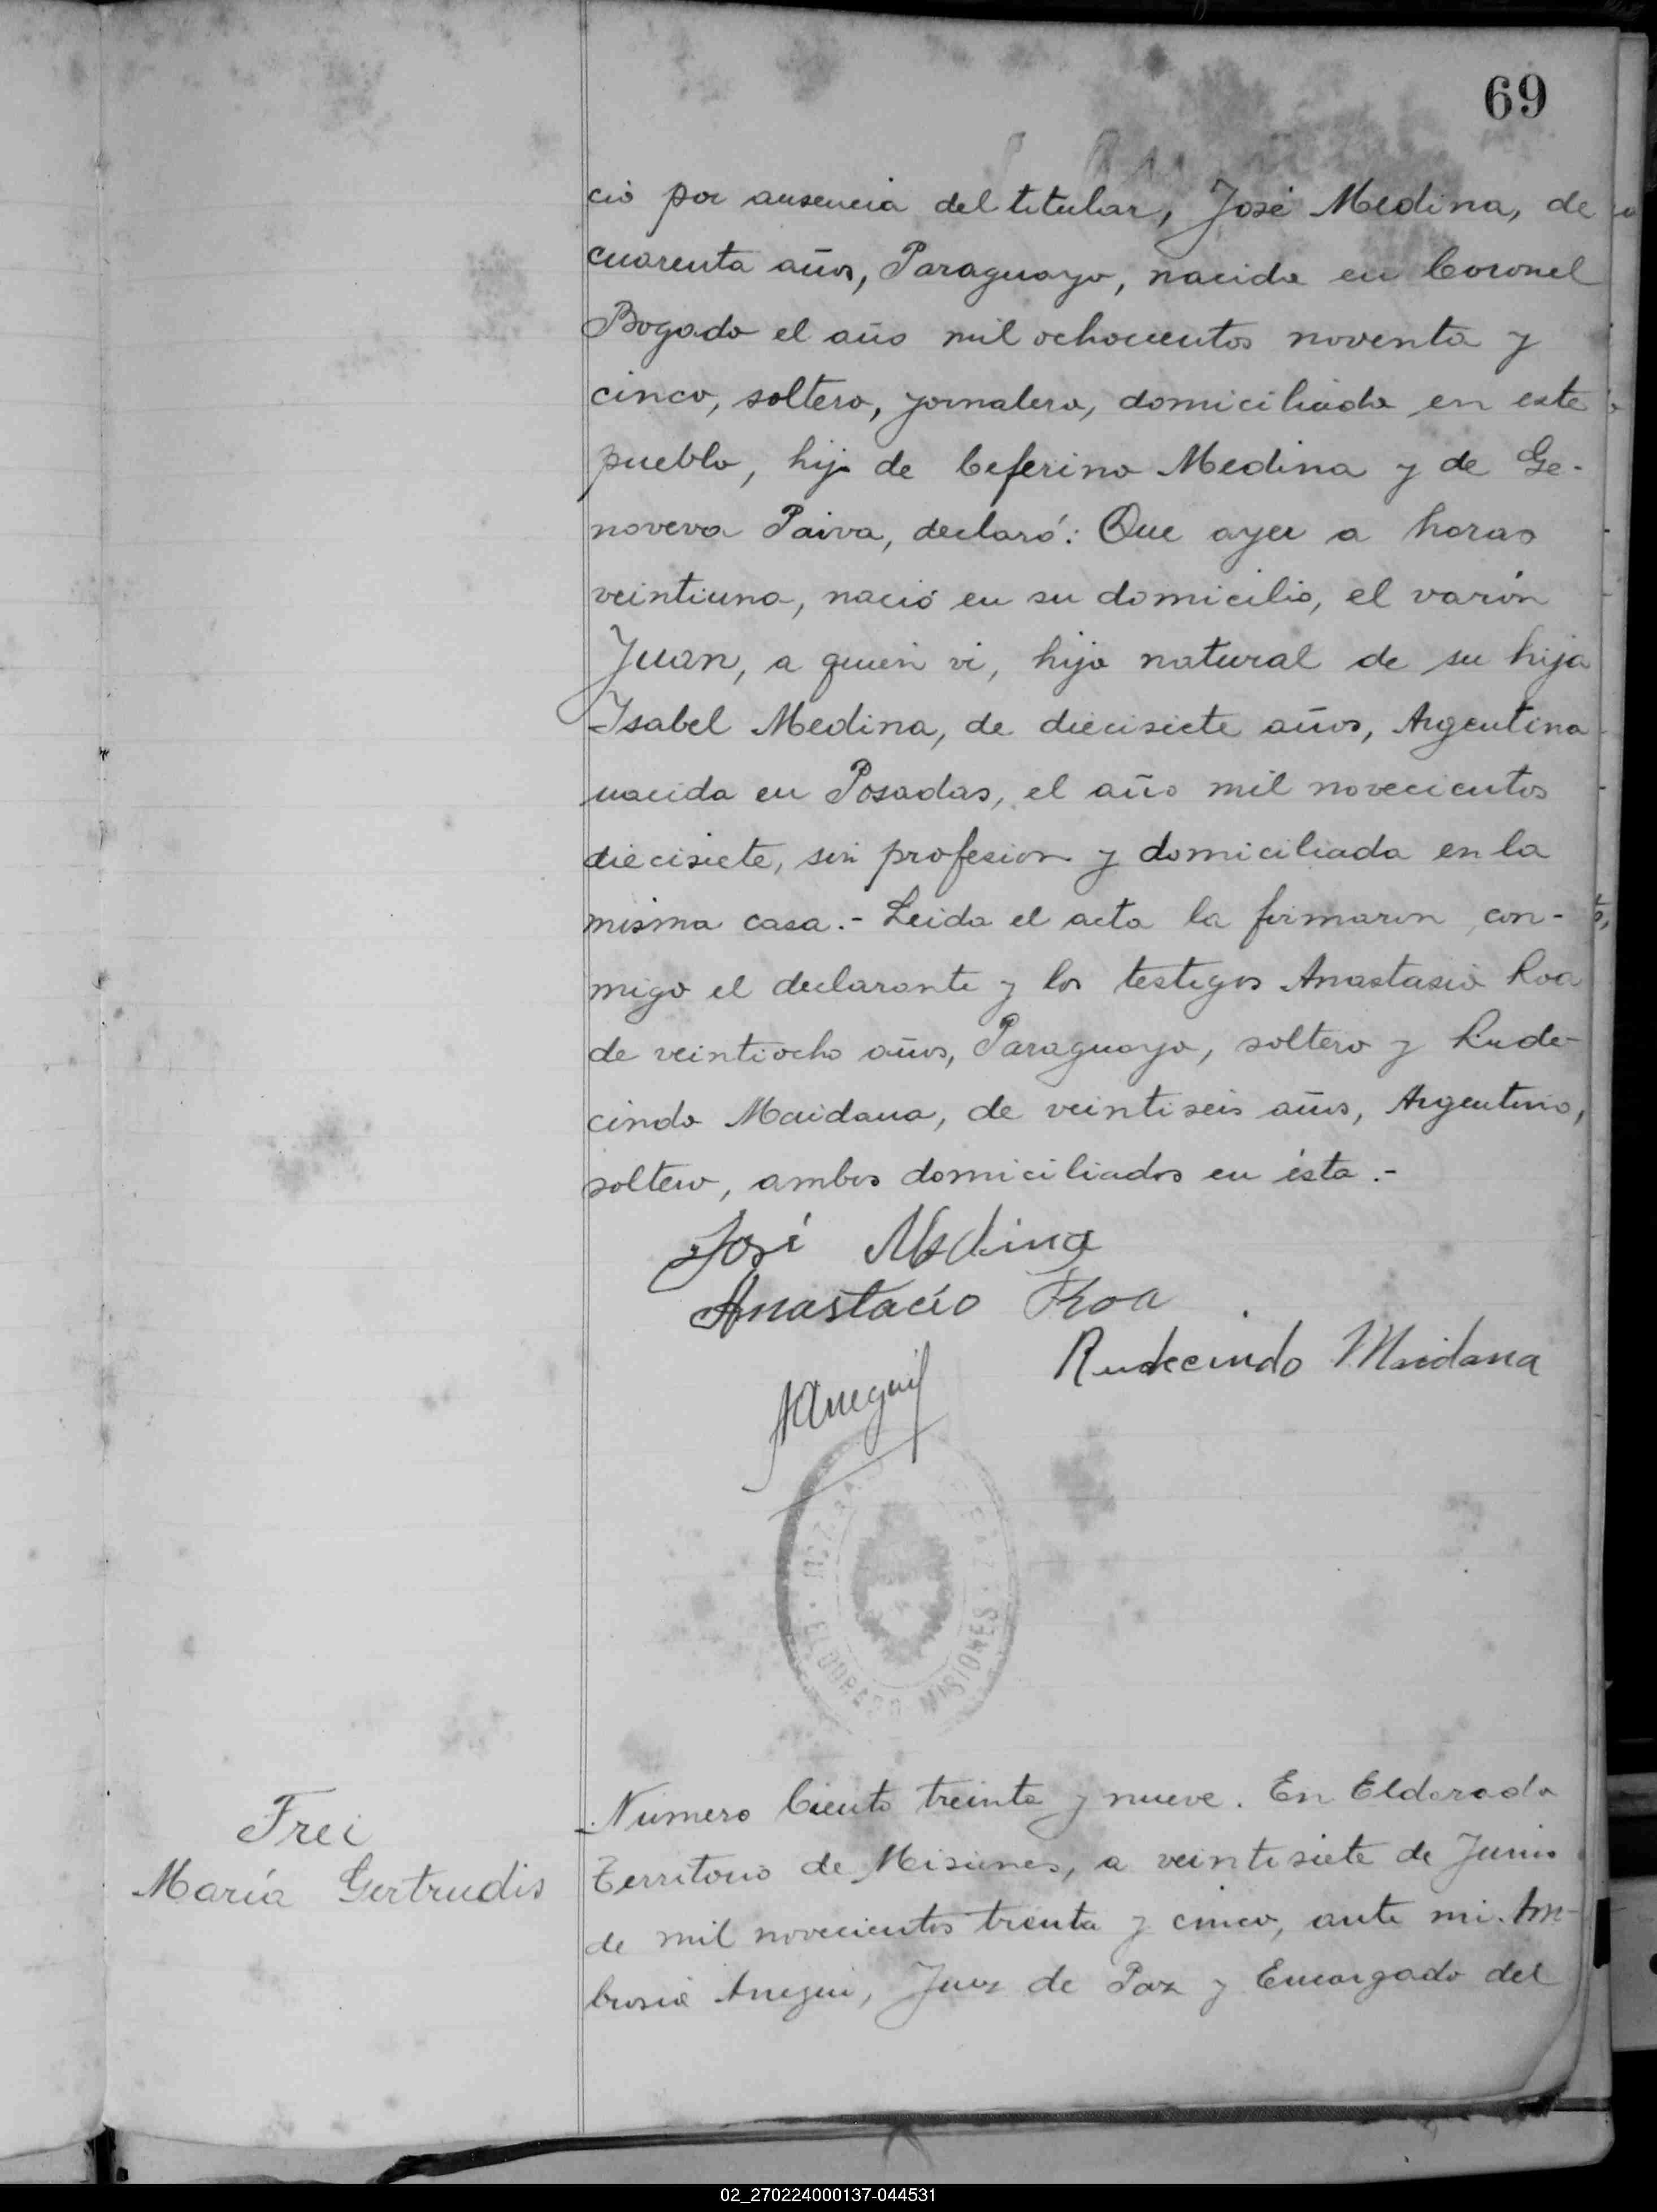 69
cio por ausencia del titular, José Medina, de
cuarenta años, Paraguayo, nacido en Coronel
Bogado el año mil ochocientos noventa y
cinco, soltero, jornalero, domiciliado en este
pueblo, hijo de Ceferino Medina y de Ge-
noveva Paiva, declaró: Que ayer a horas
veintiuna, nació en su domicilio, el varón
Juan, a quien vi, hijo natural de su hija
Isabel Medina, de diecisiete años, Argentina
nacida en Posadas, el año mil novecientos
diecisiete, sin profesion y domiciliada en la
misma casa.- Leida el acta la firmaron con-
migo el declarante y los testigos Anastasio Roa
de veintiocho años, Paraguayo, soltero y Rude-
cindo Maidana, de veintiseis años, Argentino,
soltero, ambos domiciliados en ésta.-
José Medina
Anastacio Roa
Rudecindo Maidana
ELDORADO MISIONES
Frei
María Gertrudis
Número Ciento treinta y nueve. En Eldorado
Territorio de Misiones, a veintisiete de Junio
de mil novecientos treinta y cinco, ante mi Am-
brosio Anegui, Juez de Paz y Encargado del
02_270224000137-044531